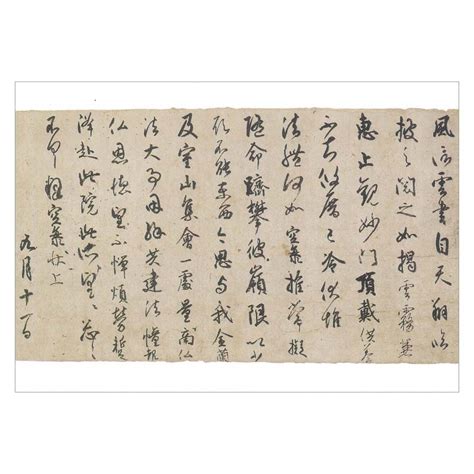 風信雲書自天翔臨
披之閲之如掲雲霧兼
恵止觀妙門頂戴供養
不知攸厝已冷伏惟
法體何如空海推常擬
隨命躋攀彼嶺限以少
願不能東西今思与我金蘭
及室山集會一處量商仏
法大事因縁共建法幢報
仏恩徳望不憚煩勞蹔
降赴此院此所望々忩々
不具釋空海状上
九月十一日